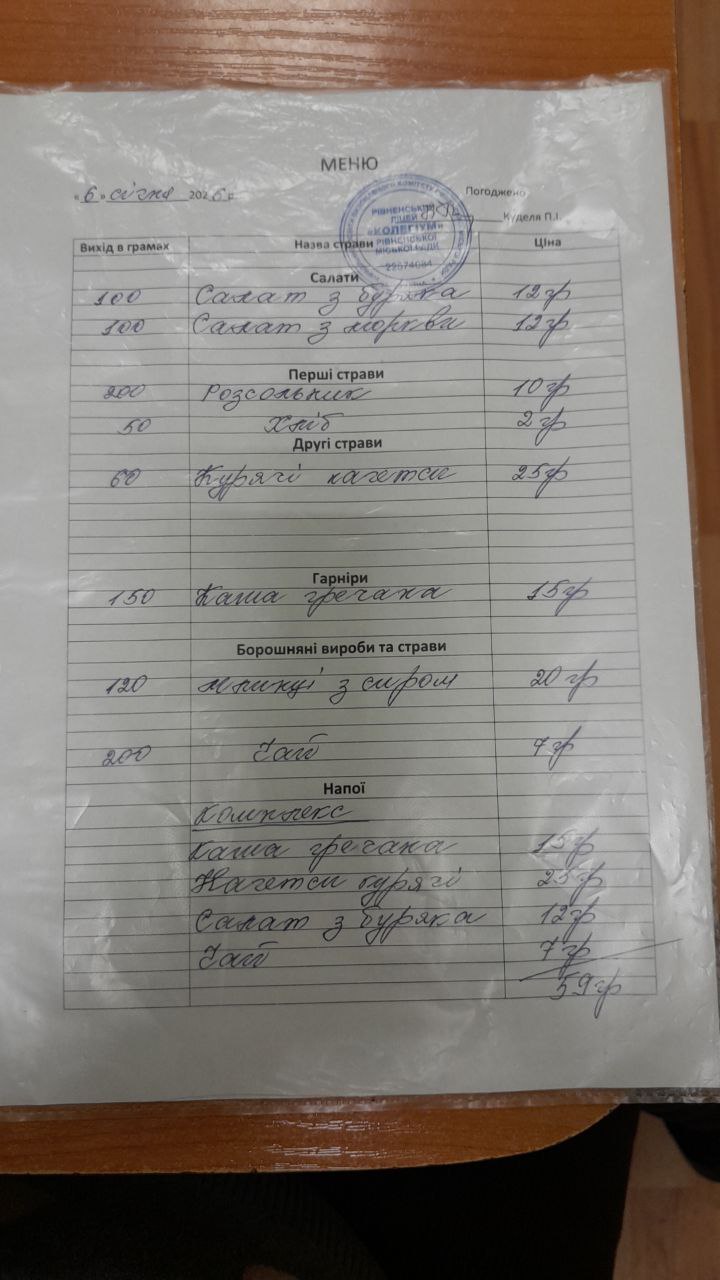 МЕНЮ
«6» січня 2026 р
Погоджено
Куделя П.І.
РІВНЕНСЬКИЙ
ЛІЦЕЙ
«КОЛЕГІУМ»
РІВНЕНСЬКОЇ
МІСЬКОЇ РАДИ
22574084
Вихід в грамах Назва страви Ціна
Салати
100 Салат з буряка 12гр
100 Салат з моркви 12гр
Перші страви
200 Розсольник 10гр
50 Хліб 2гр
Другі страви
60 Курячі нагетси 25гр
Гарніри
150 Каша гречана 15гр
Борошняні вироби та страви
120 млинці з сиром 20гр
200 Чай 7гр
Напої
Комплекс
Каша гречана 15гр
Нагетси курячі 25гр
Салат з буряка 12гр
Чай 7гр
59гр